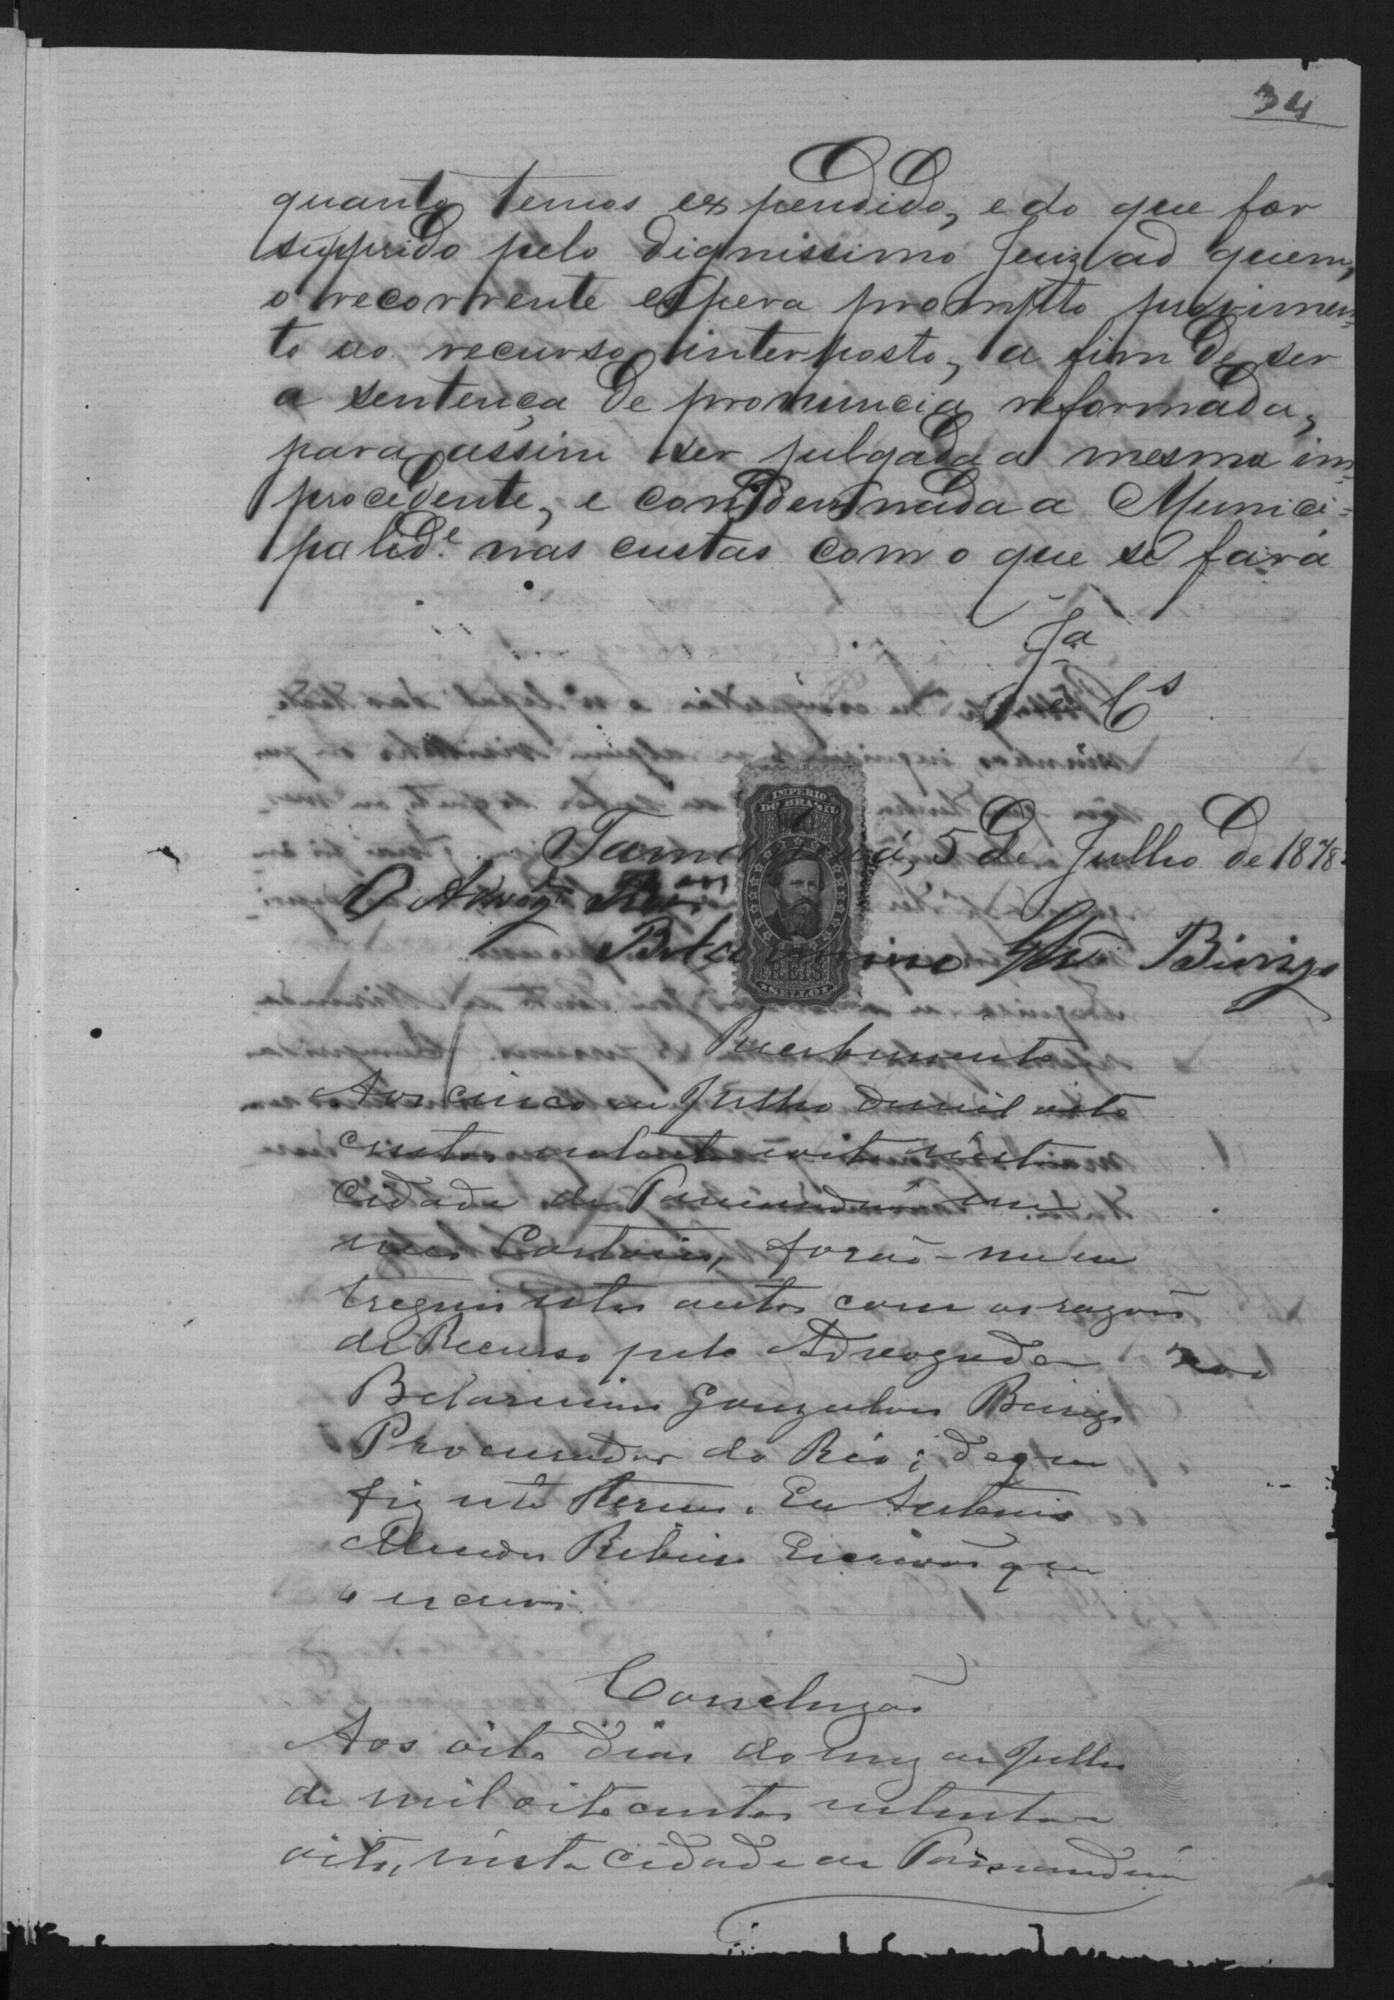 34
quanto temos expendido, e do que for
supprido pelo dignissimo Juiz ad quem,
o recorrente espera prompto provimen=
to ao recurso interposto, a fim de ser
a sentença de pronuncia reformada,
para assim ser julgada a mesma im=
procedente, e condemnada a Munici=
palide. nas custas com o que se fará
Ja
e Cs
IMPERIO
DO BRASIL
Tamanduá, 5 de Julho de 1878
O Advogdo
REIS
SELLO
Belarmino Glz Biringa
Recebimento
Aos cinco de Julho de mil oito
centos setenta e oito nésta
cidade de Tamanduá em
meu Cartorio, forão-me en
tregues estes autos com as razoes
de Recurso pelo Advogado
Belarmino Gonzalves
Procurador do Réo; de que
fiz este termo. Eu Antonio
Mendes Ribeiro Escrivão que
o escrevi.
Concluzão
Aos oito dias do mez de Julho
de mil oito centos setenta e
oito, nésta cidade de Tamanduá